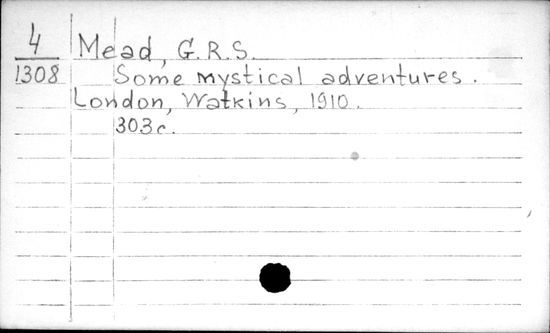 4
1308
Mead, G.R.S.
Some mystical adventures.
London, Watkins, 1910.
303c.